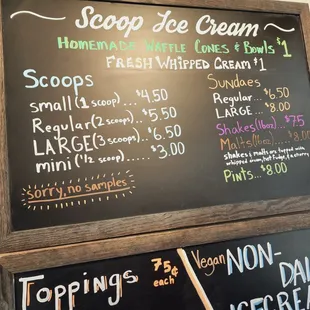 Scoop Ice Cream
Homemade Waffle Cones & Bowls $1
Fresh Whipped Cream $1
Scoops
small (1 scoop)...$4.50
Regular (2 scoops)...$5.50
LARGE (3 scoops)...$6.50
mini (1/2 scoop).....$3.00
sorry, no samples
Sundaes
Regular...$6.50
LARGE...$8.00
Shakes (16oz)...$7.5
Malts (16oz)...$8.00
shakes & malts are topped with
whipped cream, hot fudge, &
Pints...$8.00
Toppings 75¢
each
Vegan NON-
DAI
ICECREA